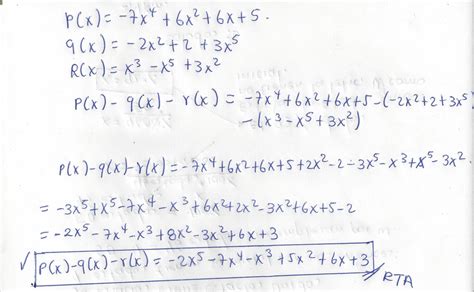 P(x) = -7x⁴ + 6x² + 6x + 5.
q(x) = -2x² + 2 + 3x⁵
R(x) = x³ - x⁵ + 3x²
P(x) - q(x) - r(x) = -7x⁴ + 6x² + 6x + 5 - (-2x² + 2 + 3x⁵)
- (x³ - x⁵ + 3x²)
P(x) - q(x) - r(x) = -7x⁴ + 6x² + 6x + 5 + 2x² - 2 - 3x⁵ - x³ + x⁵ - 3x².
= -3x⁵ + x⁵ - 7x⁴ - x³ + 6x² + 2x² - 3x² + 6x + 5 - 2
= -2x⁵ - 7x⁴ - x³ + 8x² - 3x² + 6x + 3
√ P(x) - q(x) - r(x) = -2x⁵ - 7x⁴ - x³ + 5x² + 6x + 3
RTA